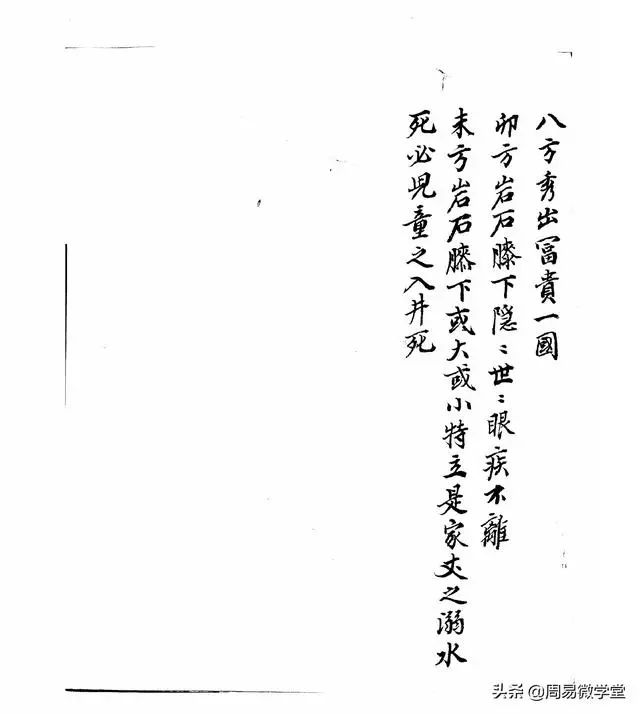 八方秀出冨貴一國
卯方岩石膝下隠〻世〻眼疾不離
未方岩石膝下或大或小特立是家丈之溺水
死必児童之入井死
头条 @周易微学堂